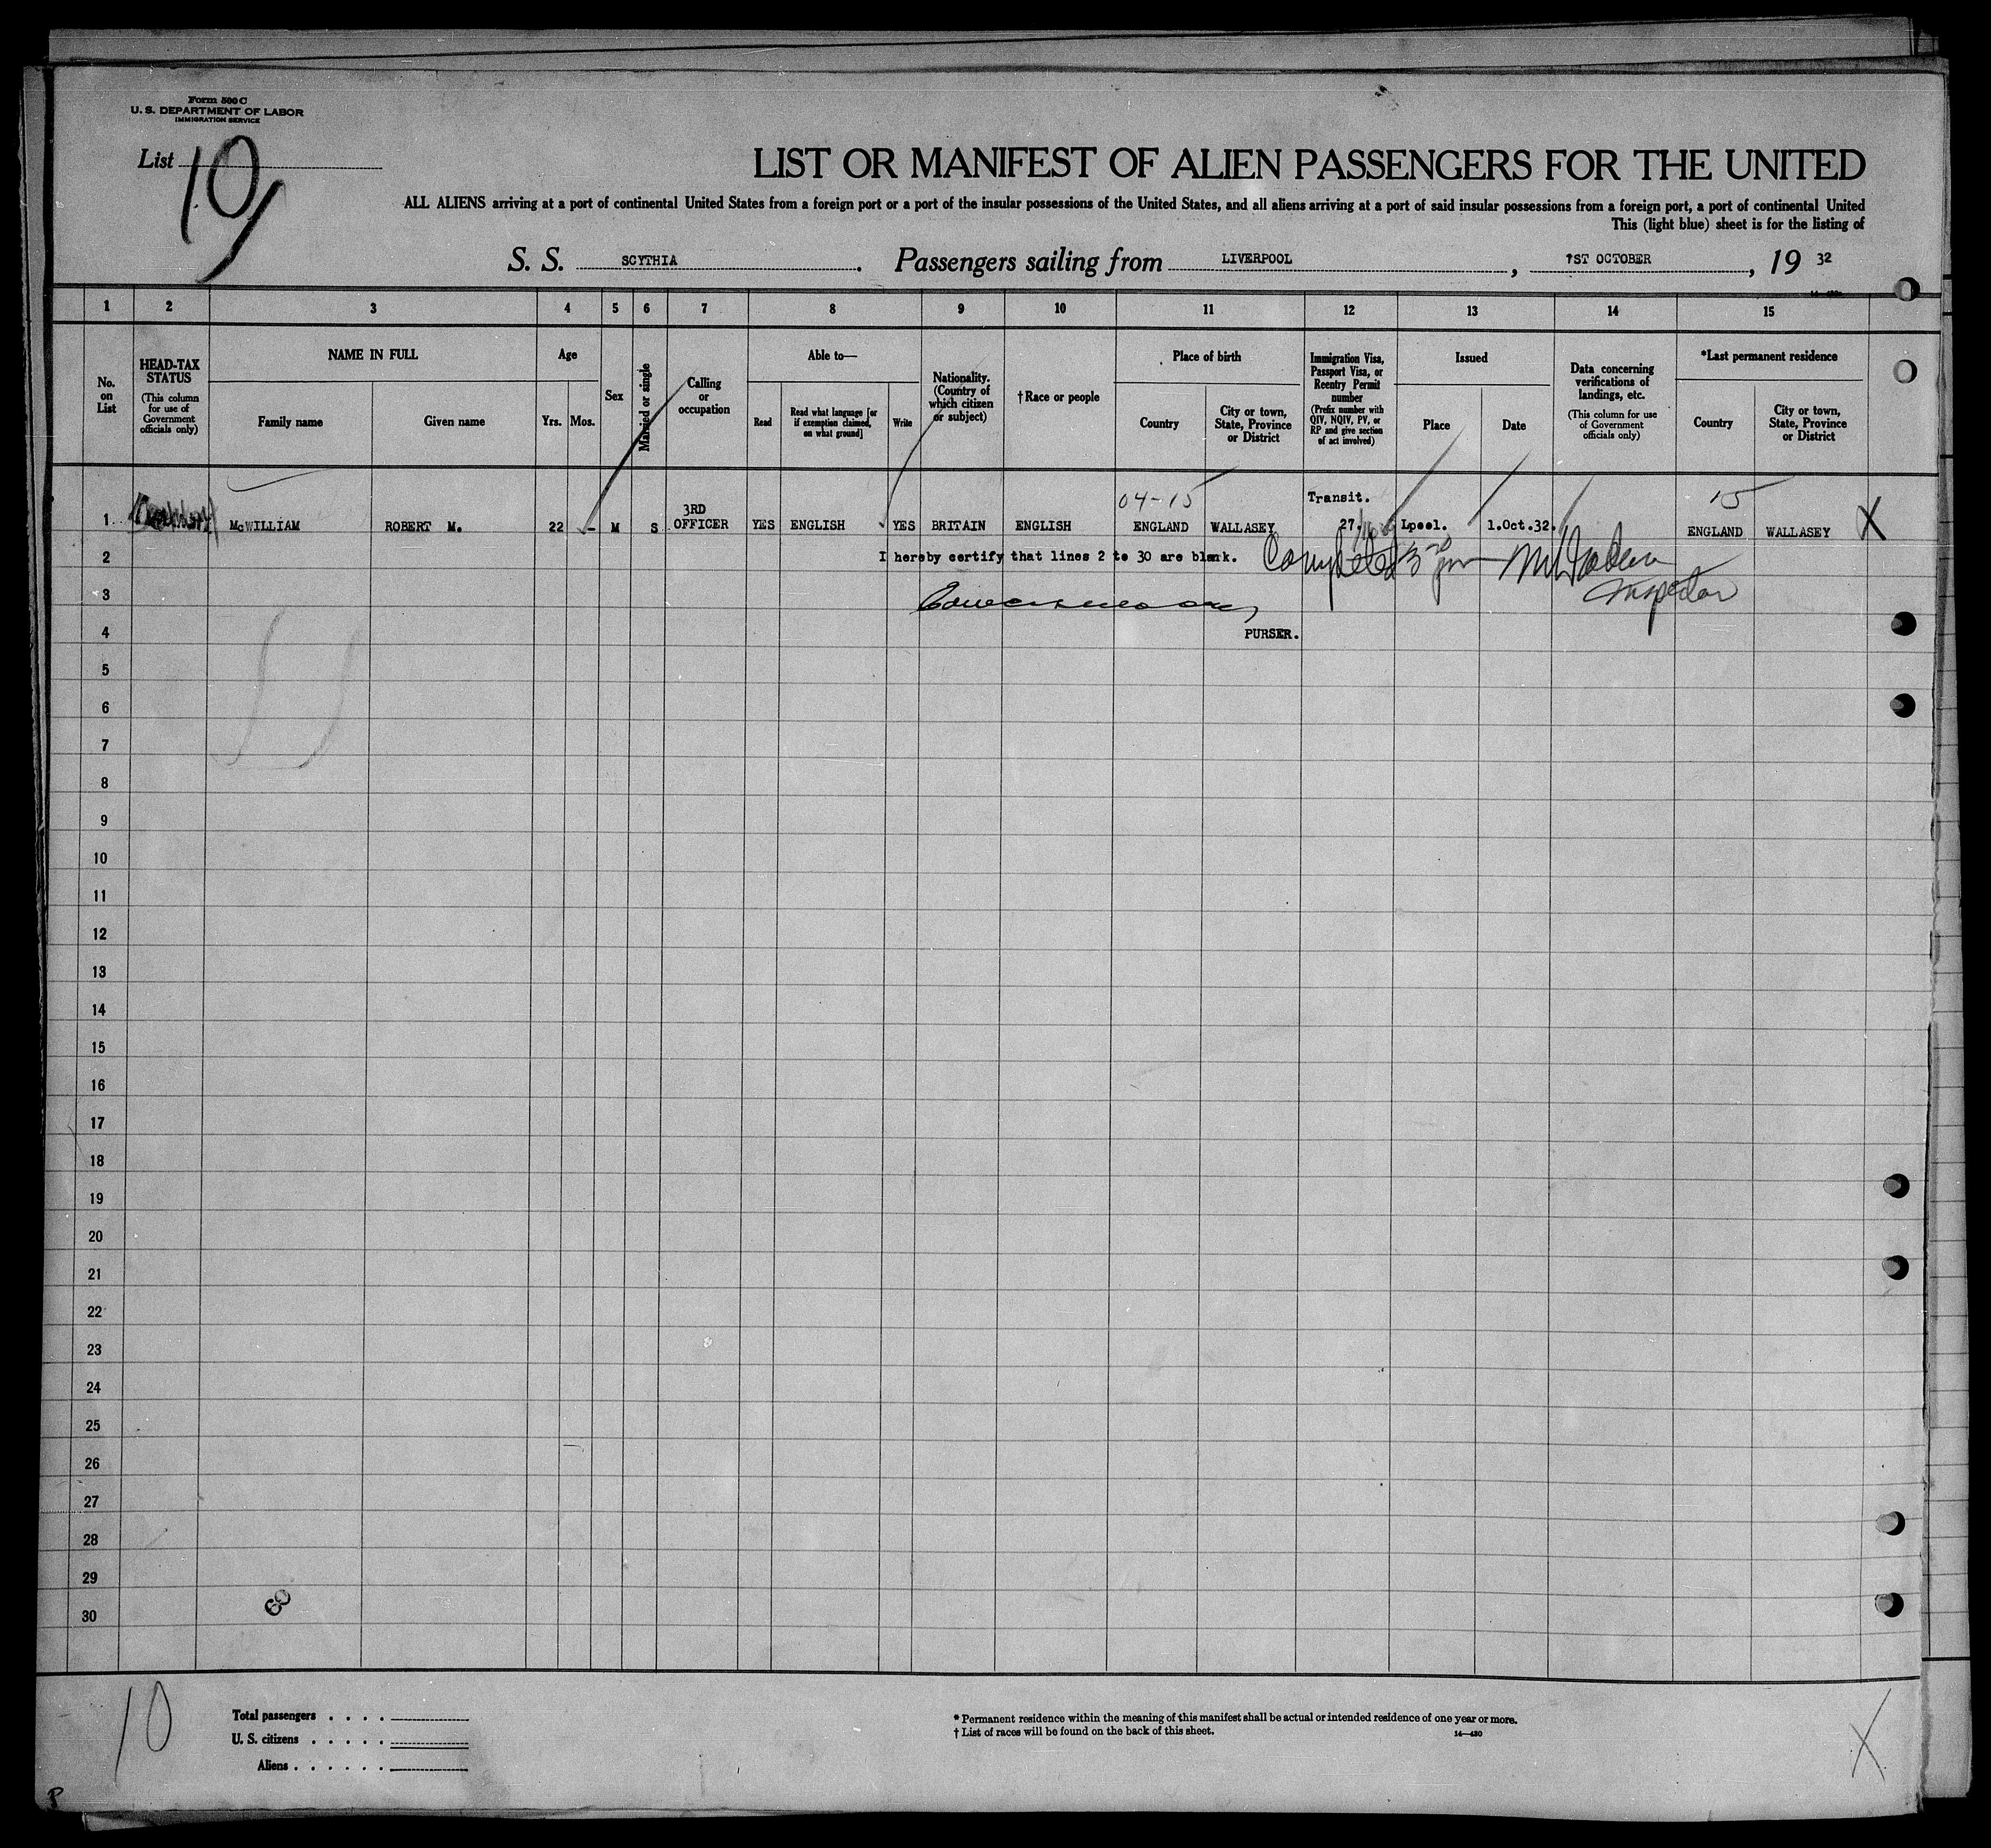 Form 500 C
U. S. DEPARTMENT OF LABOR
IMMIGRATION SERVICE
List 10
LIST OR MANIFEST OF ALIEN PASSENGERS FOR THE UNITED
ALL ALIENS arriving at a port of continental United States from a foreign port or a port of the insular possessions of the United States, and all aliens arriving at a port of said insular possessions from a foreign port, a port of continental United
This (light blue) sheet is for the listing of
S. S. SCYTHIA. Passengers sailing from LIVERPOOL, 1ST OCTOBER, 19 32
1 2 3 4 5 6 7 8 9 10 11 12 13 14 15
No. on List
HEAD-TAX STATUS
(This column for use of Government officials only)
NAME IN FULL
Family name
Given name
Age
Yrs. Mos.
Sex
Married or single
Calling or occupation
Able to—
Read
Read what language [or if exemption claimed, on what ground]
Write
Nationality. (Country of which citizen or subject)
†Race or people
Place of birth
Country
City or town, State, Province or District
Immigration Visa, Passport Visa, or Reentry Permit number
(Prefix number with QIV, NQIV, PV, or RP and give section of act involved)
Issued
Place
Date
Data concerning verifications of landings, etc.
(This column for use of Government officials only)
*Last permanent residence
Country
City or town, State, Province or District
04-15
Transit.
15
1 McWILLIAM ROBERT M. 22 - M S 3RD OFFICER YES ENGLISH YES BRITAIN ENGLISH ENGLAND WALLASEY 27. Lpool. 1.Oct.32. ENGLAND WALLASEY X
2 I hereby certify that lines 2 to 30 are blank. Completed
3 Inspector
4 PURSER.
5
6
7
8
9
10
11
12
13
14
15
16
17
18
19
20
21
22
23
24
25
26
27
28
29
30
60
10
Total passengers . . . .
U. S. citizens . . . . .
Aliens . . . . . .
* Permanent residence within the meaning of this manifest shall be actual or intended residence of one year or more.
† List of races will be found on the back of this sheet.
14—430
X
P